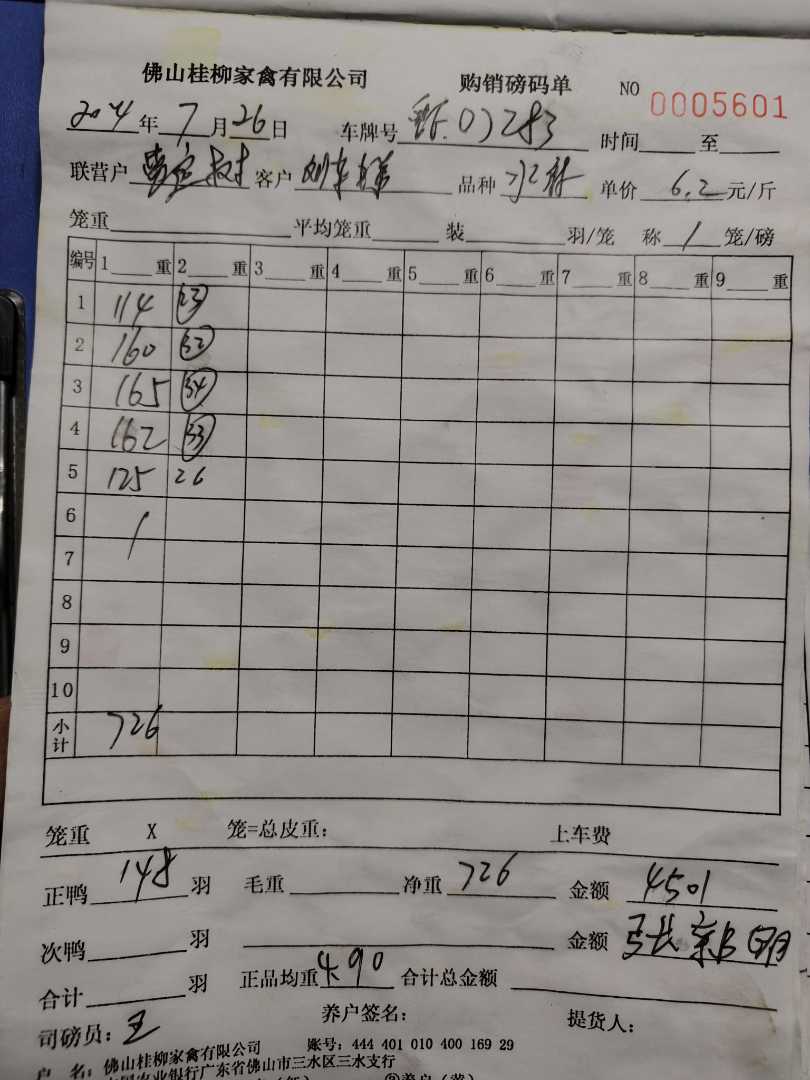 佛山桂柳家禽有限公司 购销磅码单 NO 0005601
年 7 月 26 日 车牌号 07283 时间 至
联营户 客户 品种 单价 6.2 元/斤
笼重 平均笼重 装 羽/笼 称 1 笼/磅
编号 1 重 2 重 3 重 4 重 5 重 6 重 7 重 8 重 9 重
1 114 23
2 160 32
3 165 34
4 162 33
5 125 26
6
7
8
9
10
小计 726
笼重 X 笼=总皮重: 上车费
正鸭 148 羽 毛重 净重 726 金额 4501
次鸭 羽 金额
合计 羽 正品均重 4.90 合计总金额
司磅员: 王 养户签名: 提货人:
户 名: 佛山桂柳家禽有限公司 账号: 444 401 010 400 169 29
农业银行广东省佛山市三水区三水支行